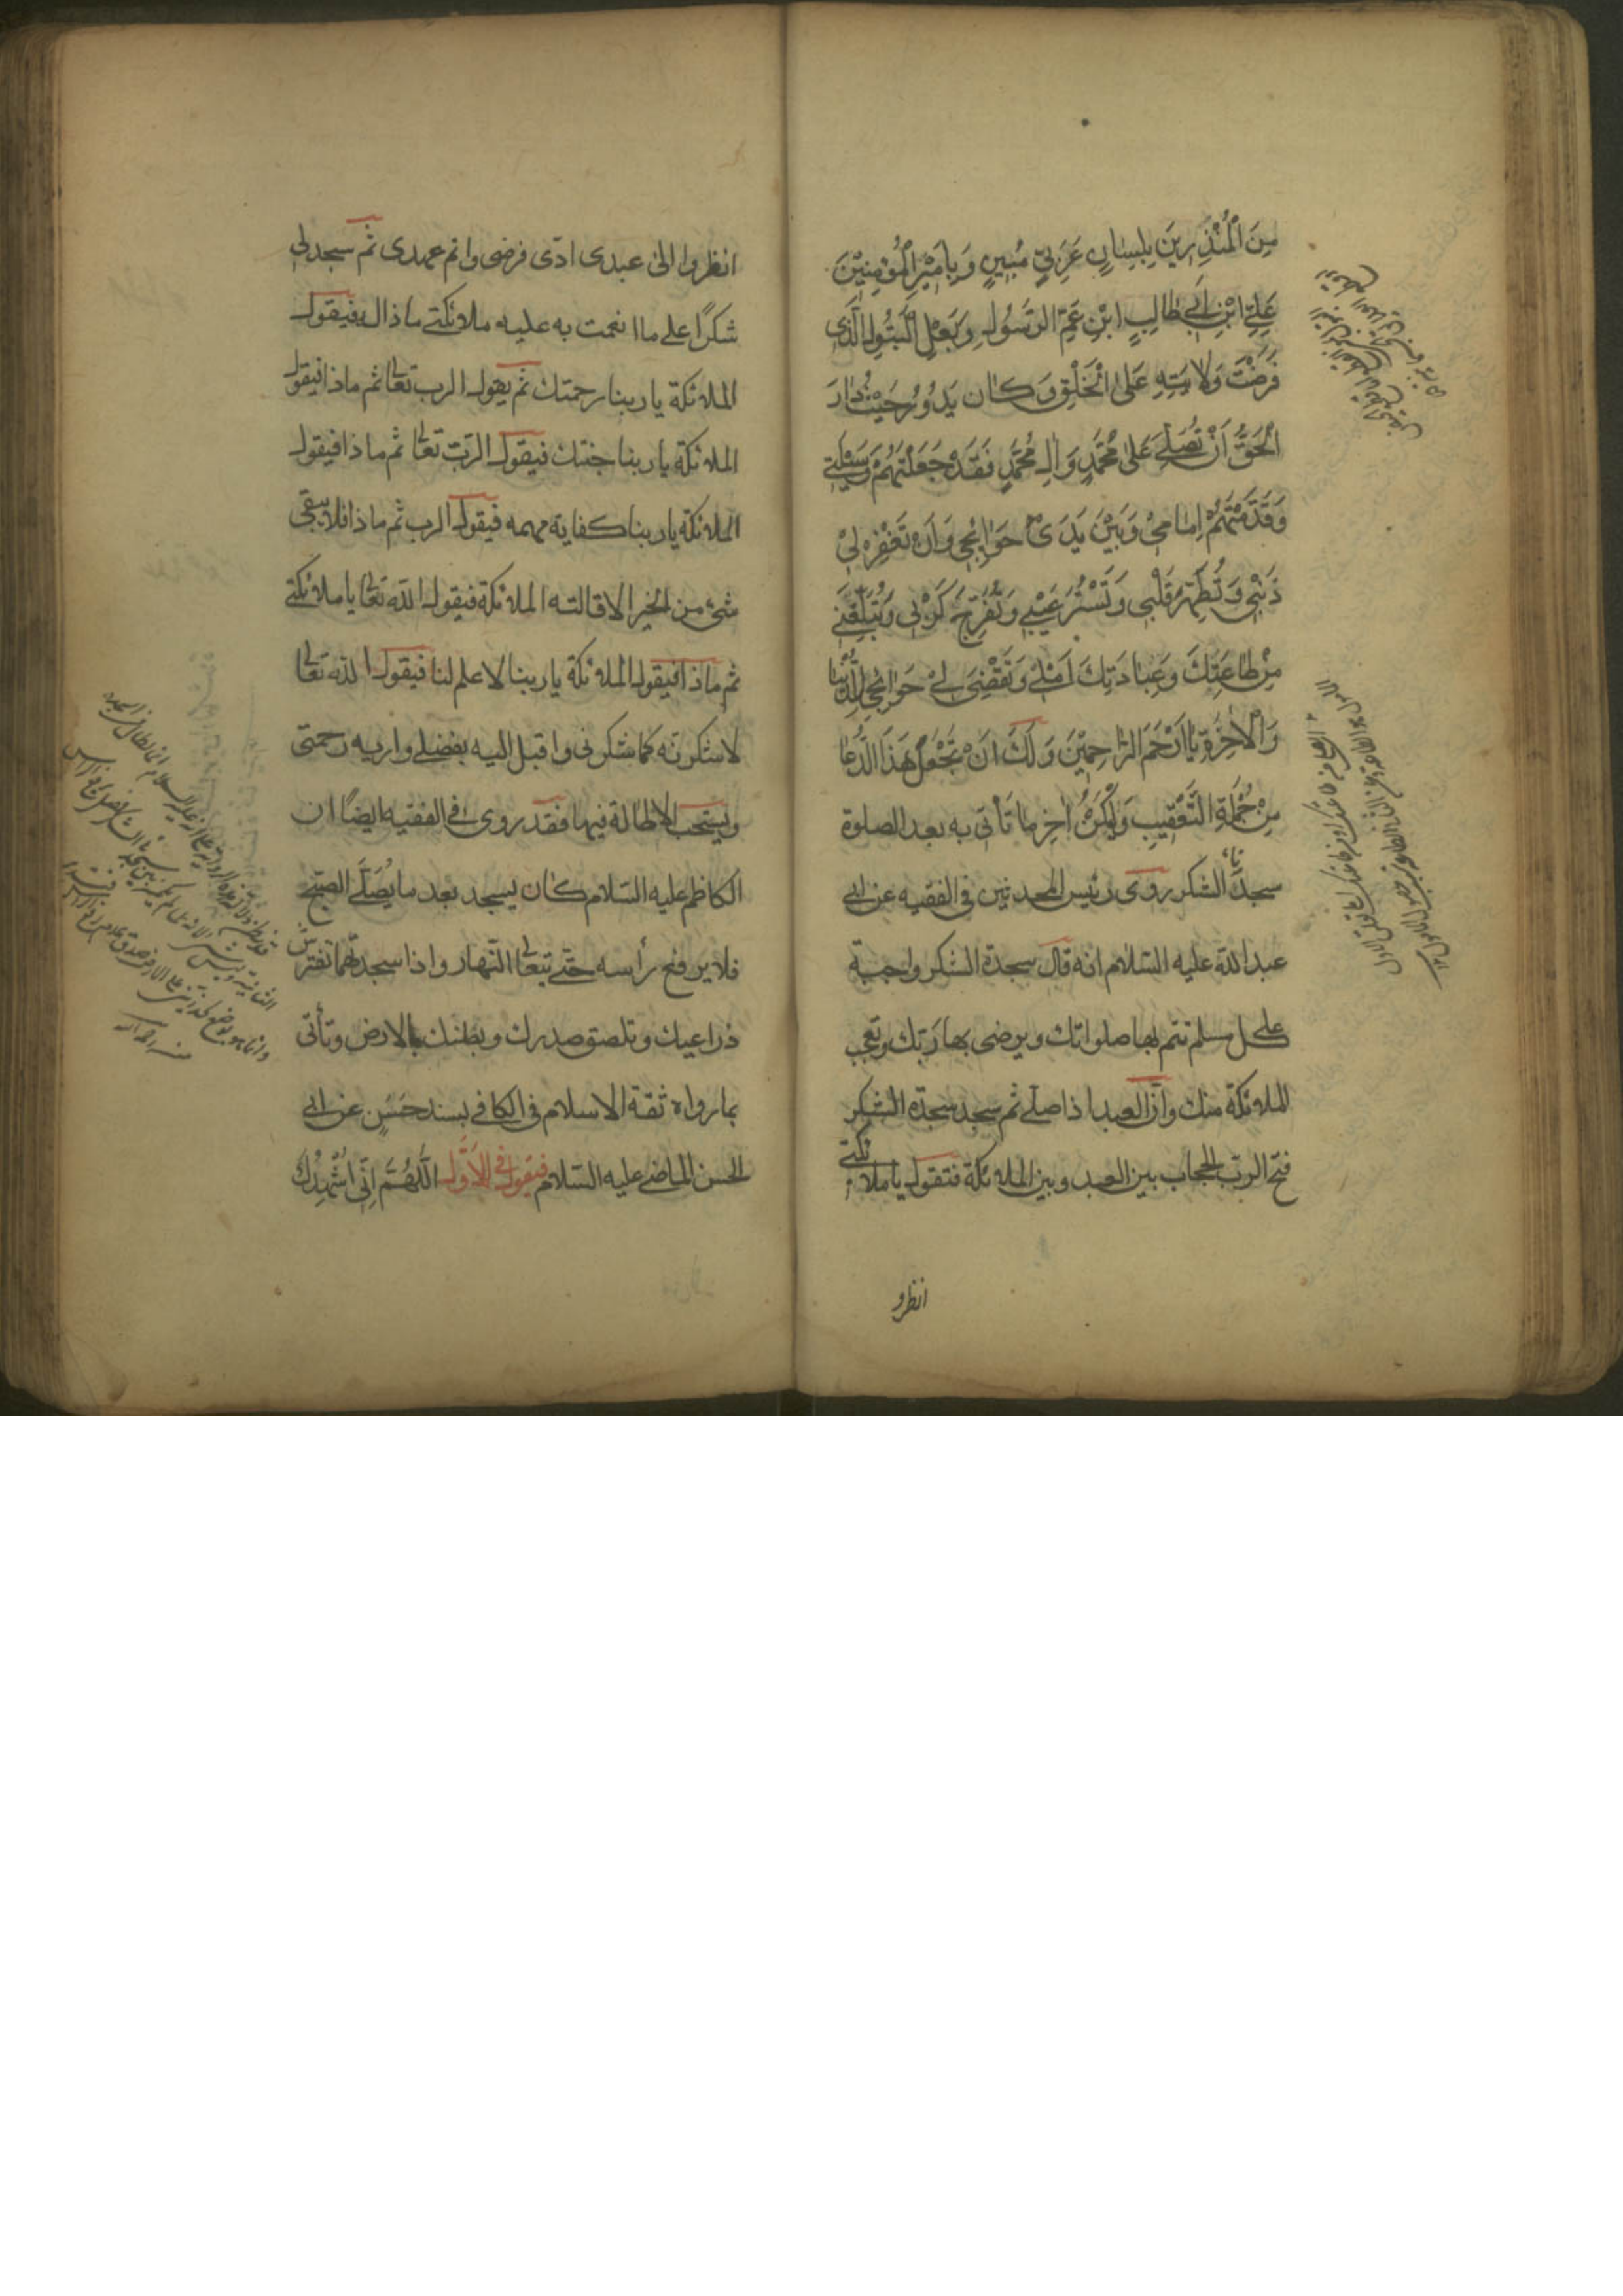 مِنَ الْمُنْذِرِينَ بِلِسٰانٍ عَرَبِيٍّ مُبِينٍ وَبِاَمِيْرِ الْمُؤْمِنِيْنَ
عَلِيِّ ابْنِ اَبِي طٰالِبٍ ابْنِ عَمِّ الرَّسُولِ وَبَعْلِ الْبَتُولِ الَّذِى
فَرَضْتَ وَلايَتَهِ عَلَى الْخَلْقِ وَكٰان يَدُورُ حَيْثُ دٰارَ
الْحَقُّ اَنْ تُصَلِّيَ عَلٰى مُحَمَّدٍ وَاٰلِ مُحَمَّدٍ فَقَدْ جَعَلْتُهُمْ وَسيٖلَتي
وَقَدَّمْتُهُمْ اِمٰامي وَبَيْنَ يَدَىْ حَوٰائِجي وَاَنْ تَغْفِرَ لي
ذَنْبي وَتُطَهِّرَ قَلْبي وَتَسْتُرَ عَيْبي وَتُفَرِّجَ كَرْبي وَتُبَلِّغَني
مِنْ طٰاعَتِكَ وَعِبٰادَتِكَ اَمَلي وَتَقْضِىَ لي حَوٰائِجي لِلدُّنْيٰا
وَالْاٰخِرَةِ يٰا اَرْحَمَ الرّٰاحِمِيْنَ وَلَكَ اَنْ تَجْعَلَ هَذَا الدُّعٰا
مِنْ جُمْلَةِ التَّعْقِيبِ وَلْيَكُنْ اٰخِرَ مٰا تَأتى به بعد الصلوة
سجدتا الشكر روى رئيس المحدثين فى الفقيه عن ابى
عبد الله عليه السّلام انه قال سجدة الشكر واجبة
على كل مسلم تتم بها صلواتك ويرضى بها ربّك وتعجب
الملائكة منك وانّ العبد اذا صلّى ثم سجد سجدة الشكر
فتح الربّ الحجاب بين العبد وبين الملائكة فتقول يا ملائكتى
انظرو
انظروا الى عبدى ادّى فرضى واتم عهدى ثم سجد لى
شكرًا على ما انعمت به عليه ملائكتى ما ذا له فيقول
الملائكة يا ربنا رحمتك ثم يقول الرب تعالى ثم ما ذا فيقول
الملائكة يا ربنا جنتك فيقول الربّ تعالى ثم ما ذا فيقول
الملائكة يا ربنا كفاية مهمه فيقول الرب ثم ما ذا فلا يبقى
شئ من الخير الا قالته الملائكة فيقول الله تعالى يا ملائكتى
ثم ما ذا فيقول الملائكة يا ربنا لا علم لنا فيقول الله تعالى
لاشكرنّه كما شكرنى واقبل اليه بفضلى واريه رحمتى
ويستحب الاطالة فيها فقد روى فى الفقيه ايضًا ان
الكاظم عليه السّلام كان يسجد بعد ما يُصَلّى الصّبح
فلا يرفع رأسه حتّى يتعالى النّهار واذا سجدتهما تفترش
ذراعيك وتلصق صدرك وبطنك بالارض وتأتى
بما رواه ثقة الاسلام فى الكافى بسند حَسَنٍ عن ابى
الحسن الماضى عليه السّلام فيقول فى الاوّل اَللّٰهُمَّ اِنّى اُشْهِدُكَ